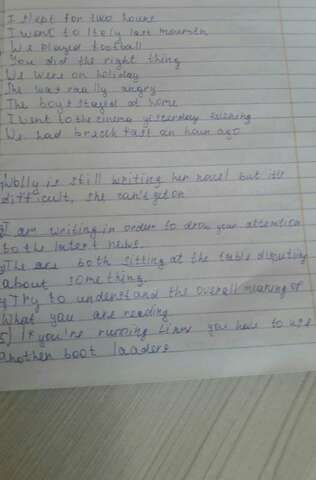 I slept for two hours
I went to Italy last mounth
We played football
You did the right thing
We were on holiday
The was really angry
The boys stayed at home
I went to the cinema yesterday evening
We had breackfast an hour ago
Wolly is still writing her novel but it's
difficult, she can't get on
I am writing in order to drow your attention
to the latest news.
The are both sitting at the table disputing
about something.
4) Try to understand the overall meaning of
What you are reading
5) If you're running you have to use
another boot